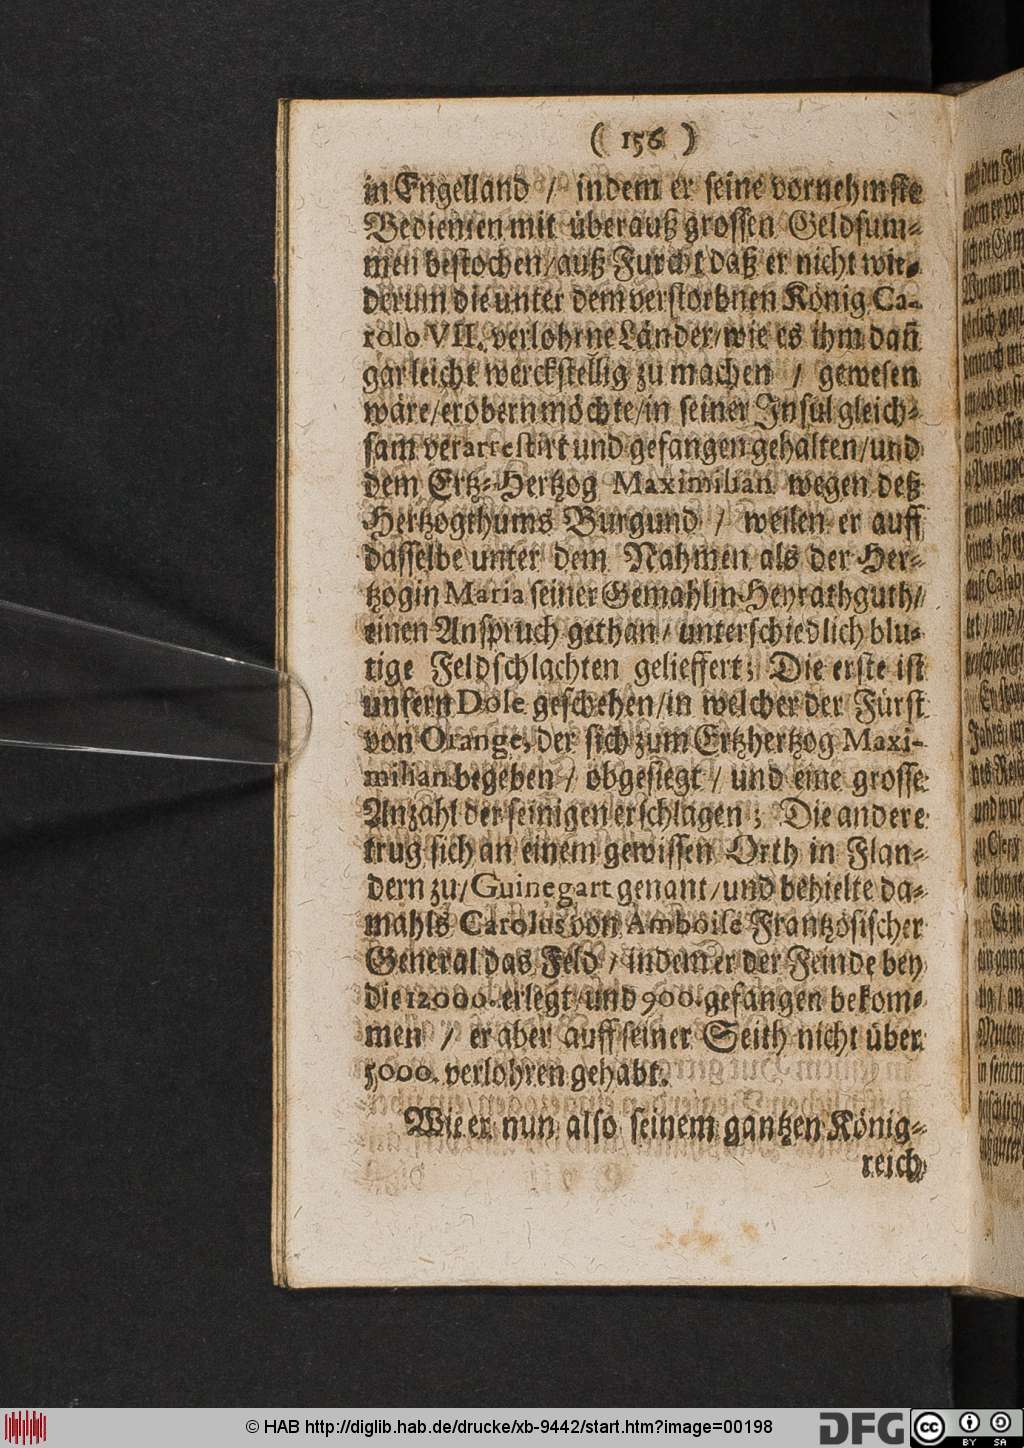 ( 156 )
in Engelland / indem er seine vornehmste
Bedienten mit überauß grossen Geldsum-
men bestochen/auß Furcht daß er nicht wie-
derum die unter dem verstorbnen König Ca-
rolo VII. verlohrne Länder/wie es ihm dañ
gar leicht werckstellig zu machen / gewesen
wäre/erobern möchte/in seiner Insul gleich-
sam verarrestirt und gefangen gehalten/und
dem Ertz-Hertzog Maximilian wegen deß
Hertzogthums Burgund / weilen er auff
dasselbe unter dem Nahmen als der Her-
tzogin Maria seiner Gemahlin Heyrathguth/
einen Anspruch gethan/ unterschiedlich blu-
tige Feldschlachten gelieffert; Die erste ist
unfern Dole geschehen/in welcher der Fürst
von Orange, der sich zum Ertzhertzog Maxi-
milian begeben / obgesiegt / und eine grosse
Anzahl der seinigen erschlagen ; Die andere
trug sich an einem gewissen Orth in Flan-
dern zu/Guinegart genant/und behielte da-
mahls Carolus von Amboise Frantzösischer
General das Feld / indem er der Feinde bey
die 12000. erlegt/und 900. gefangen bekom-
men / er aber auff seiner Seith nicht über
5000. verlohren gehabt.
Wie er nun also seinem gantzen König-
reich
© HAB http://diglib.hab.de/drucke/xb-9442/start.htm?image=00198
DFG
cc BY SA